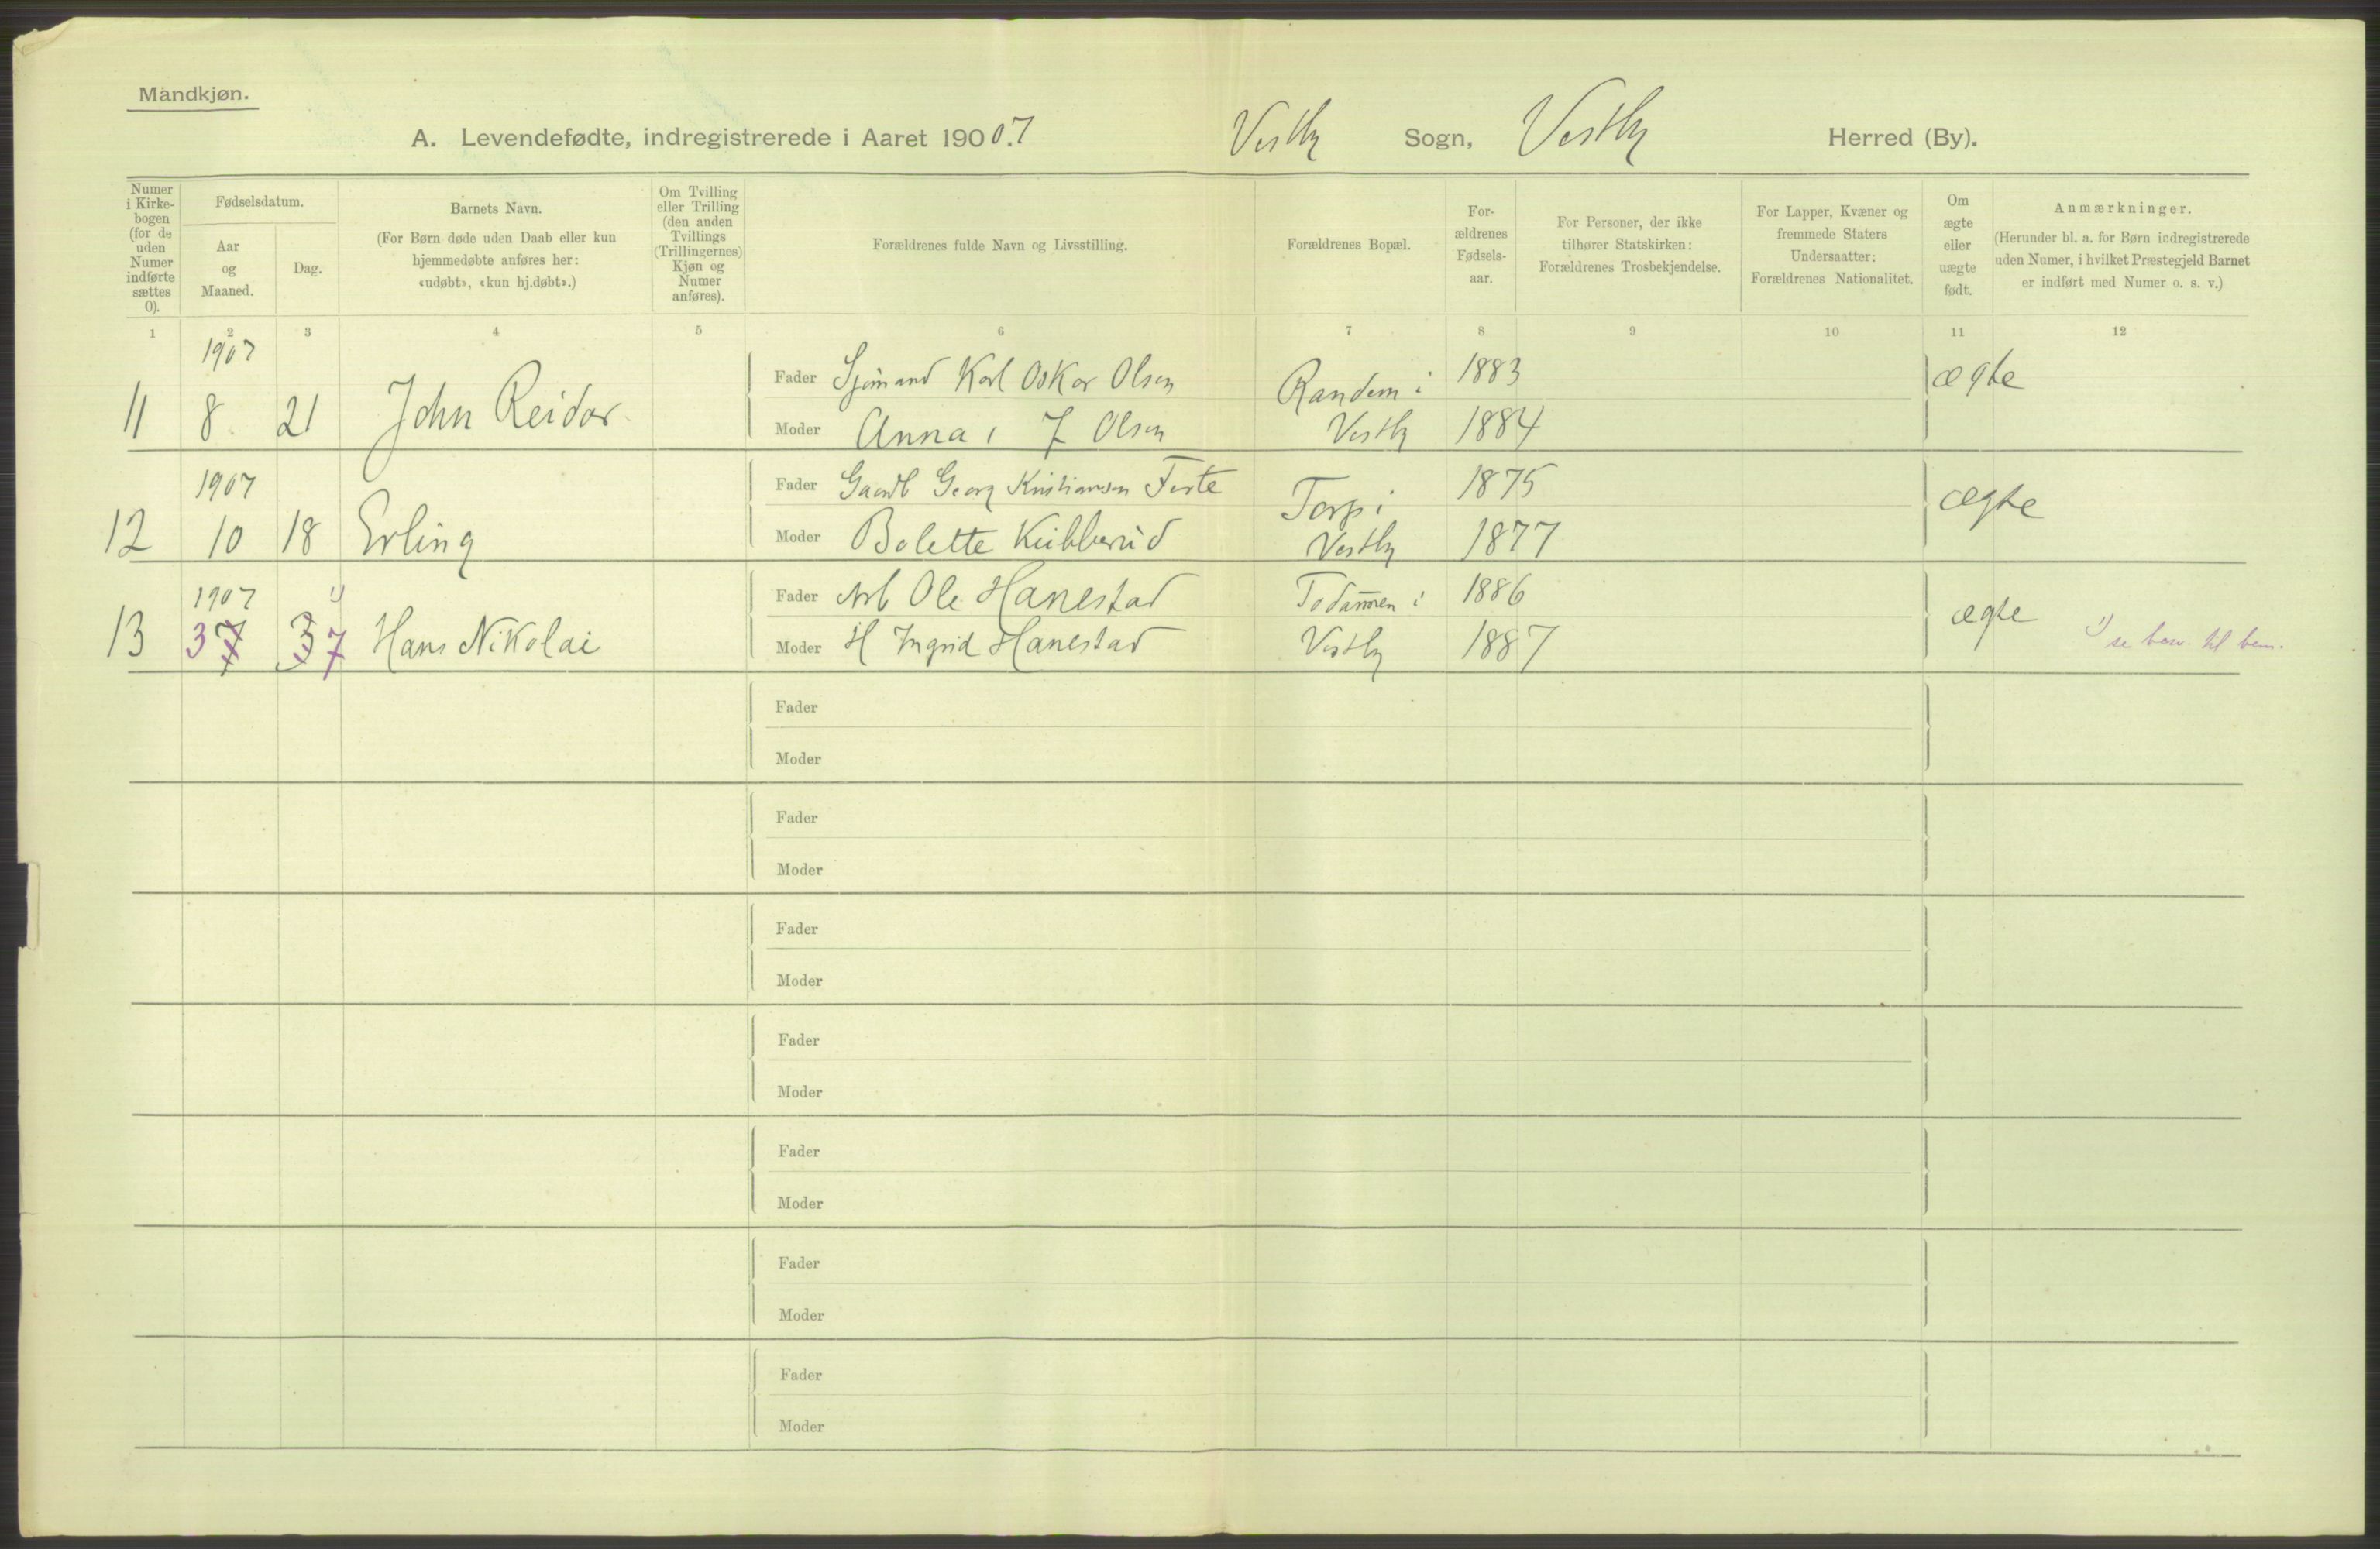 Mandkjøn.
A. Levendefødte, indregistrerede i Aaret 1900.7 Vestby Sogn, Vestby Herred (By).
Numer i Kirkebogen (for de uden Numer indførte sættes 0).
Fødselsdatum.
Aar og Maaned.
Dag.
Barnets Navn.
(For Børn døde uden Daab eller kun hjemmedøbte anføres her: «udøbt», «kun hj.døbt».)
Om Tvilling eller Trilling (den anden Tvillings (Trillingernes) Kjøn og Numer anføres).
Forældrenes fulde Navn og Livsstilling.
Forældrenes Bopæl.
Forældrenes Fødselsaar.
For Personer, der ikke tilhører Statskirken: Forældrenes Trosbekjendelse.
For Lapper, Kvæner og fremmede Staters Undersaatter: Forældrenes Nationalitet.
Om ægte eller uægte født.
Anmærkninger.
(Herunder bl. a. for Børn indregistrerede uden Numer, i hvilket Præstegjeld Barnet er indført med Numer o. s. v.)
1 2 3 4 5 6 7 8 9 10 11 12
1907
Fader Sjømand Karl Oskar Olsen Randem i 1883 ægte
11 8 21 John Reidar
Moder Anna J Olsen Vestby 1884
1907
Fader Gaardb Georg Kristiansen Torp i 1875 ægte
12 10 18 Erling
Moder Bolette Kubberud Vestby 1877
1907 1)
Fader Arb Ole Hanestad i 1886 ægte
13 3 7 3 7 Hans Nikolai 1) se til
Moder H Ingrid Hanestad Vestby 1887
Fader
Moder
Fader
Moder
Fader
Moder
Fader
Moder
Fader
Moder
Fader
Moder
Fader
Moder